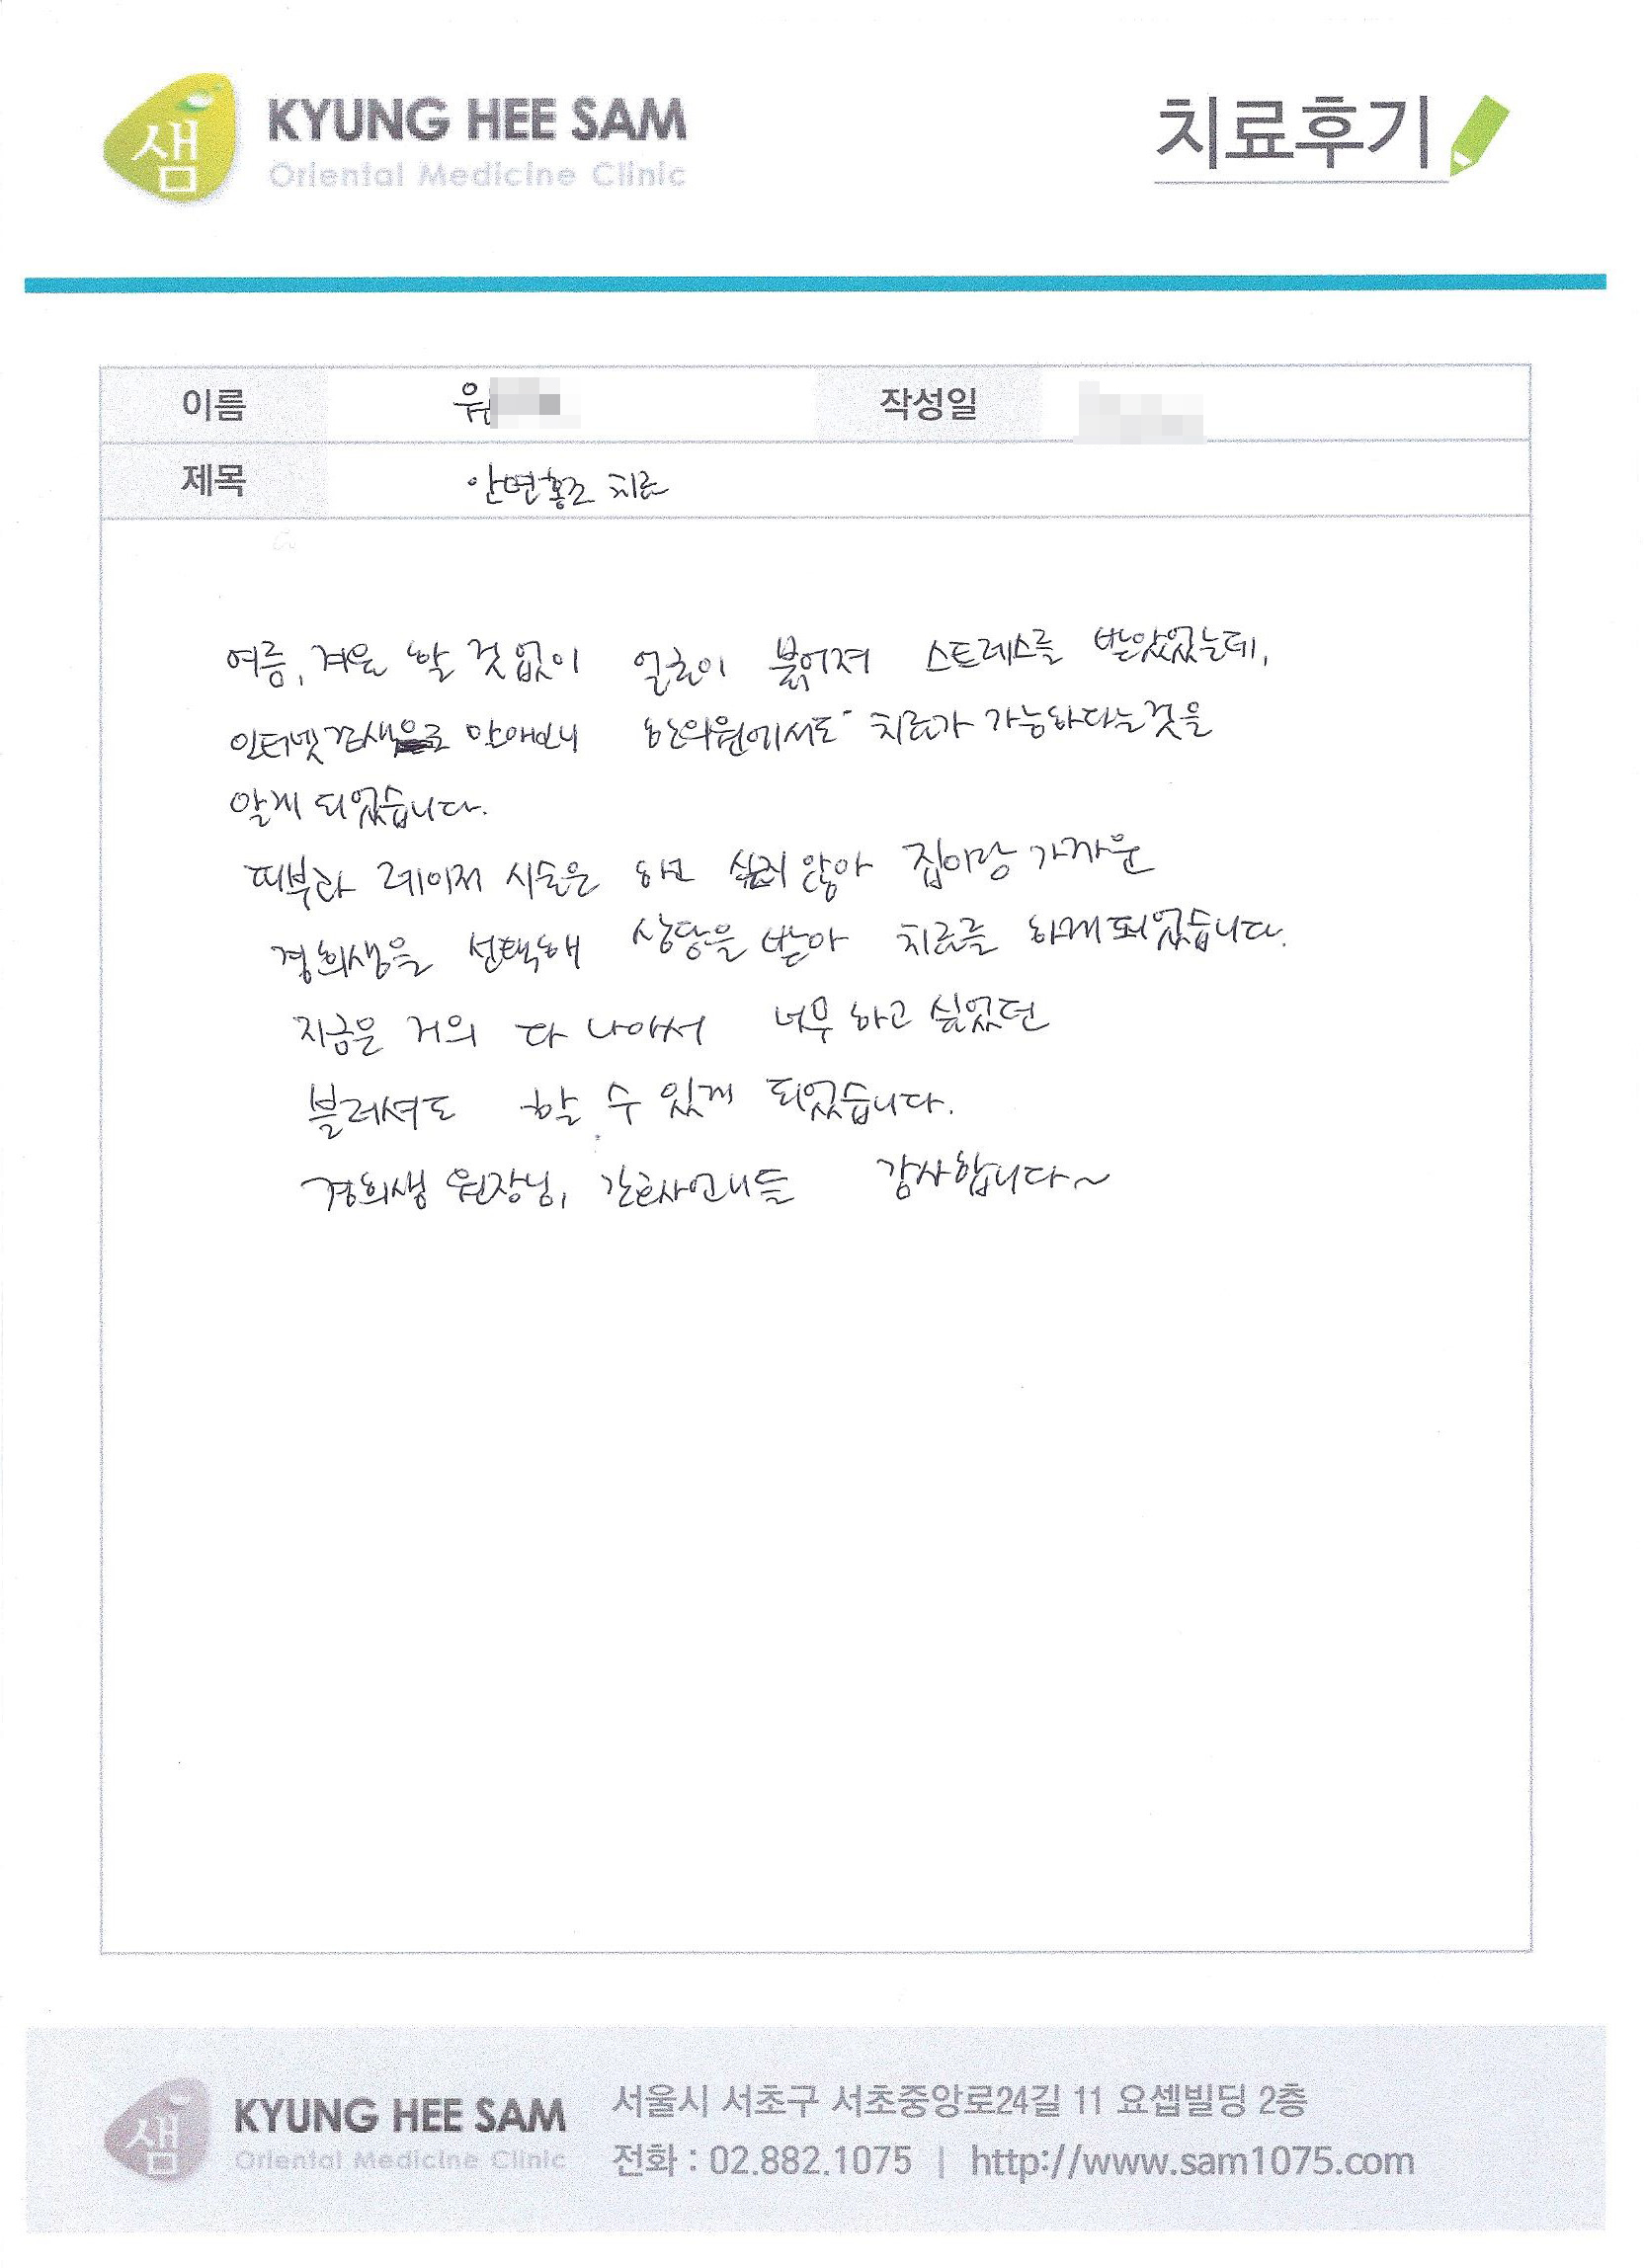 샘 KYUNG HEE SAM
Oriental Medicine Clinic
치료후기
이름 작성일
제목 안면홍조 치료
여름, 겨울 할 것 없이 얼굴이 붉어져 스트레스를 받았었는데,
인터넷 검색으로 알아보니 한의원에서도 치료가 가능하다는것을
알게 되었습니다.
피부과 레이저 시술은 하고 싶지 않아 집이랑 가까운
경희샘을 선택해 상담을 받아 치료를 하게되었습니다.
지금은 거의 다 나아서 너무 하고 싶었던
블러셔도 할 수 있게 되었습니다.
경희샘 원장님, 간호사언니들 감사합니다~
샘 KYUNG HEE SAM
Oriental Medicine Clinic
서울시 서초구 서초중앙로24길 11 요셉빌딩 2층
전화 : 02.882.1075 | http://www.sam1075.com